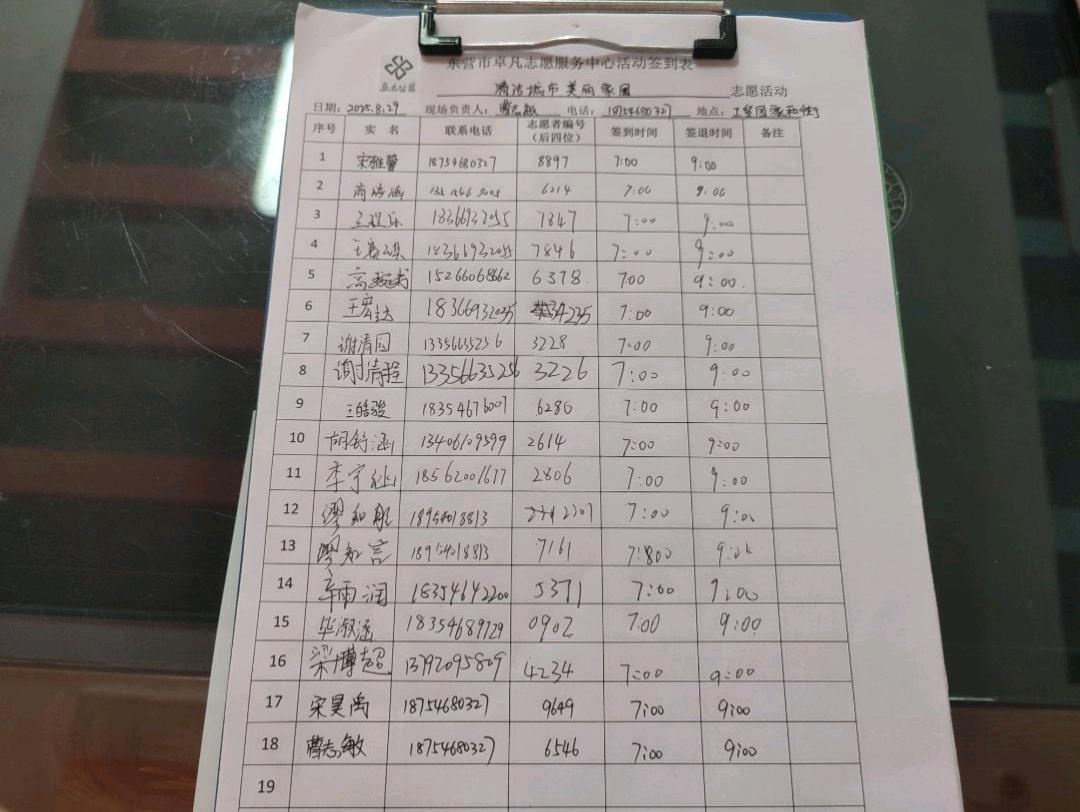 东营市卓凡志愿服务中心活动签到表
清洁城市美丽家园 志愿活动
日期: 2025.8.29 现场负责人: 曹志敏 电话: 18754680327 地点:
序号 实 名 联系电话 志愿者编号(后四位) 签到时间 签退时间 备注
1 宋雅馨 18754680327 8897 7:00 9:00
2 6214 7:00 9:00
3 18366932055 7847 7:00 9:00
4 18366932055 7846 7:00 9:00
5 15266068662 6378 7:00 9:00
6 王宏达 18366932055 4235 7:00 9:00
7 谢清同 13356635256 3228 7:00 9:00
8 谢清程 13356635256 3226 7:00 9:00
9 王皓骏 18354676007 6280 7:00 9:00
10 胡舒涵 13406109599 2614 7:00 9:00
11 李宇涵 18562001677 2806 7:00 9:00
12 缪知航 18954018813 2207 7:00 9:00
13 缪知言 18954018813 7161 7:00 9:00
14 辛雨润 18354642200 5371 7:00 9:00
15 毕淑涵 18354689729 0902 7:00 9:00
16 梁博超 13792095809 4234 7:00 9:00
17 宋昊禹 18754680327 9649 7:00 9:00
18 曹志敏 18754680327 6546 7:00 9:00
19